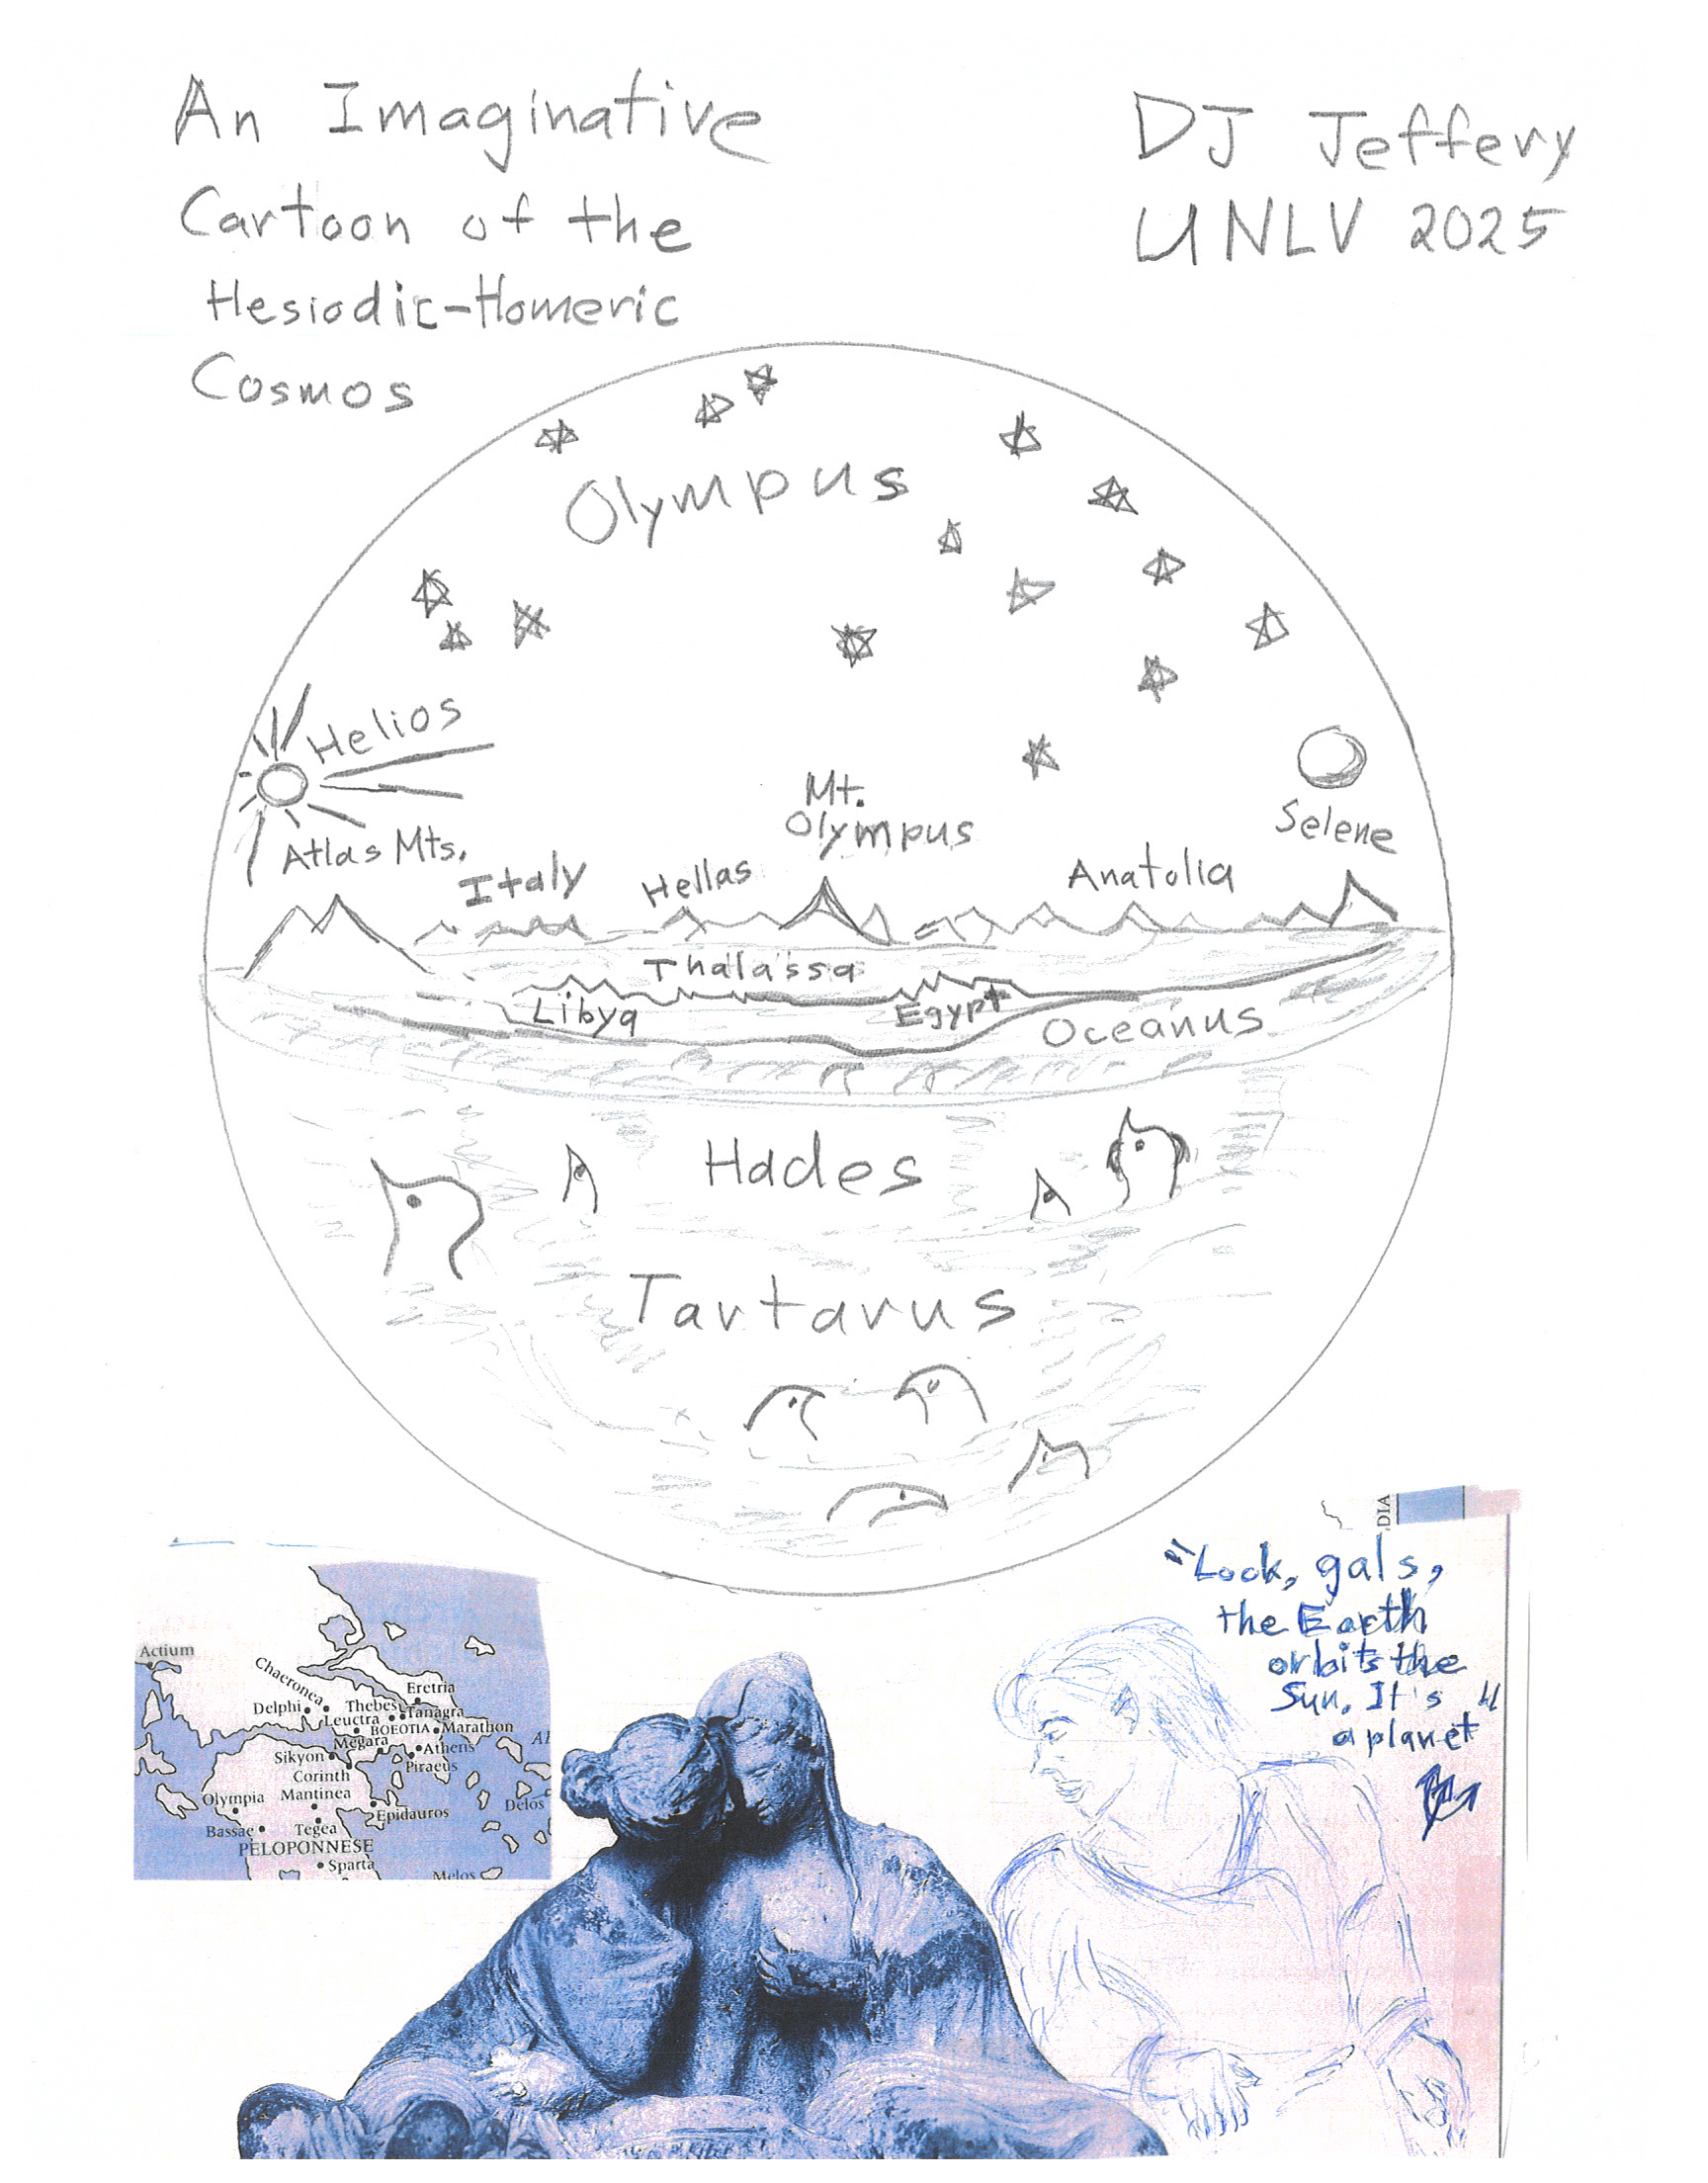 An Imaginative
Cartoon of the
Hesiodic-Homeric
Cosmos
DJ Jeffery
UNLV 2025
Olympus
Helios
Atlas Mts.
Italy
Hellas
Mt.
Olympus
Anatolia
Selene
Thalassa
Libya
Egypt
Oceanus
Hades
Tartarus
DIA
"Look, gals,
the Earth
orbits the
Sun. It's
a planet"
Actium
Chaeronea
Delphi
Thebes
Eretria
Leuctra
Tanagra
BOEOTIA
Marathon
Megara
Sikyon
Athens
Corinth
Piraeus
Olympia
Mantinea
Epidauros
Delos
Bassae
Tegea
PELOPONNESE
Sparta
Melos